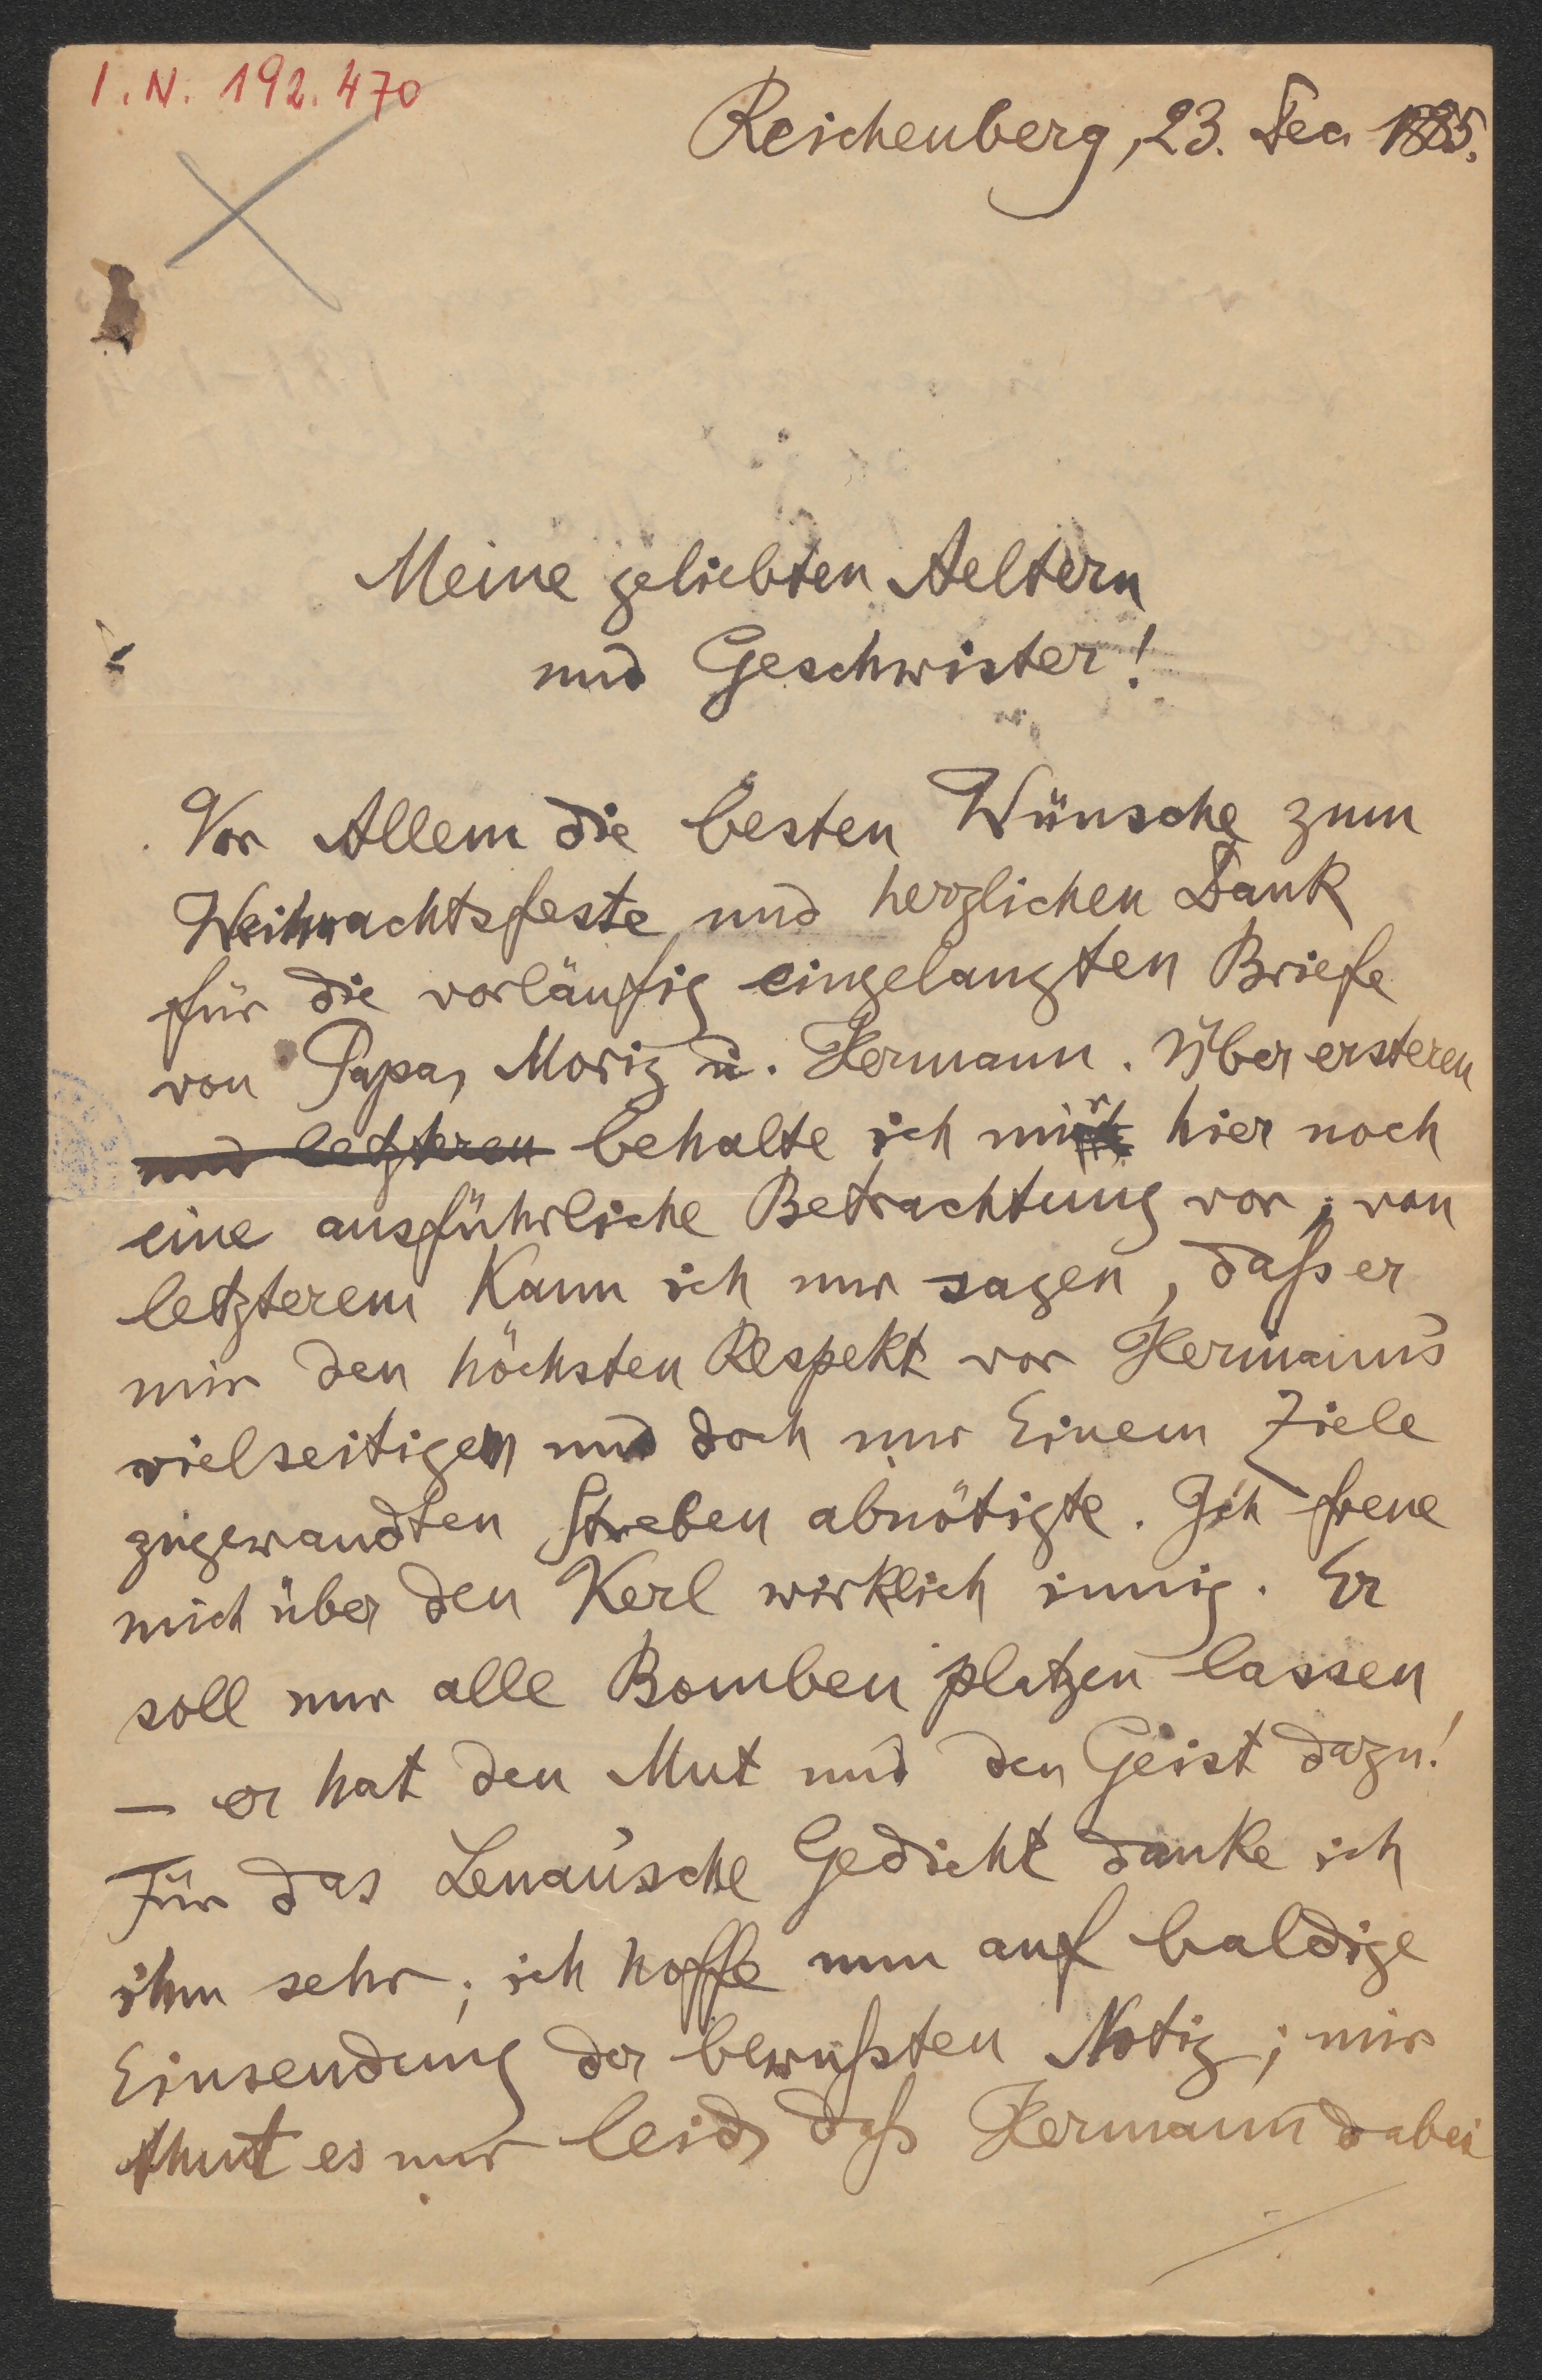 I.N. 192.470
Reichenberg, 23. Dec 1885.
Meine geliebten Aeltern
und Geschwister!
Vor Allem die besten Wünsche zum
Weihnachtsfeste und herzlichen Dank
für die vorläufig eingelangten Briefe
von Papa, Moriz u. Hermann. Über ersteren
und letzteren behalte ich mir hier noch
eine ausführliche Betrachtung vor; von
letzterem kann ich nur sagen, daß er
mir den höchsten Respekt vor Hermann's
vielseitigen und doch nur Einem Ziele
zugewandten Streben abnötigte. Ich freue
mich über den Kerl wirklich innig. Er
soll nur alle Bomben platzen lassen
– er hat den Mut und den Geist dazu!
Für das Lenau'sche Gedicht danke ich
ihm sehr; ich hoffe nun auf baldige
Einsendung der bewußten Notiz; mir
thut es nur leid, daß Hermann dabei